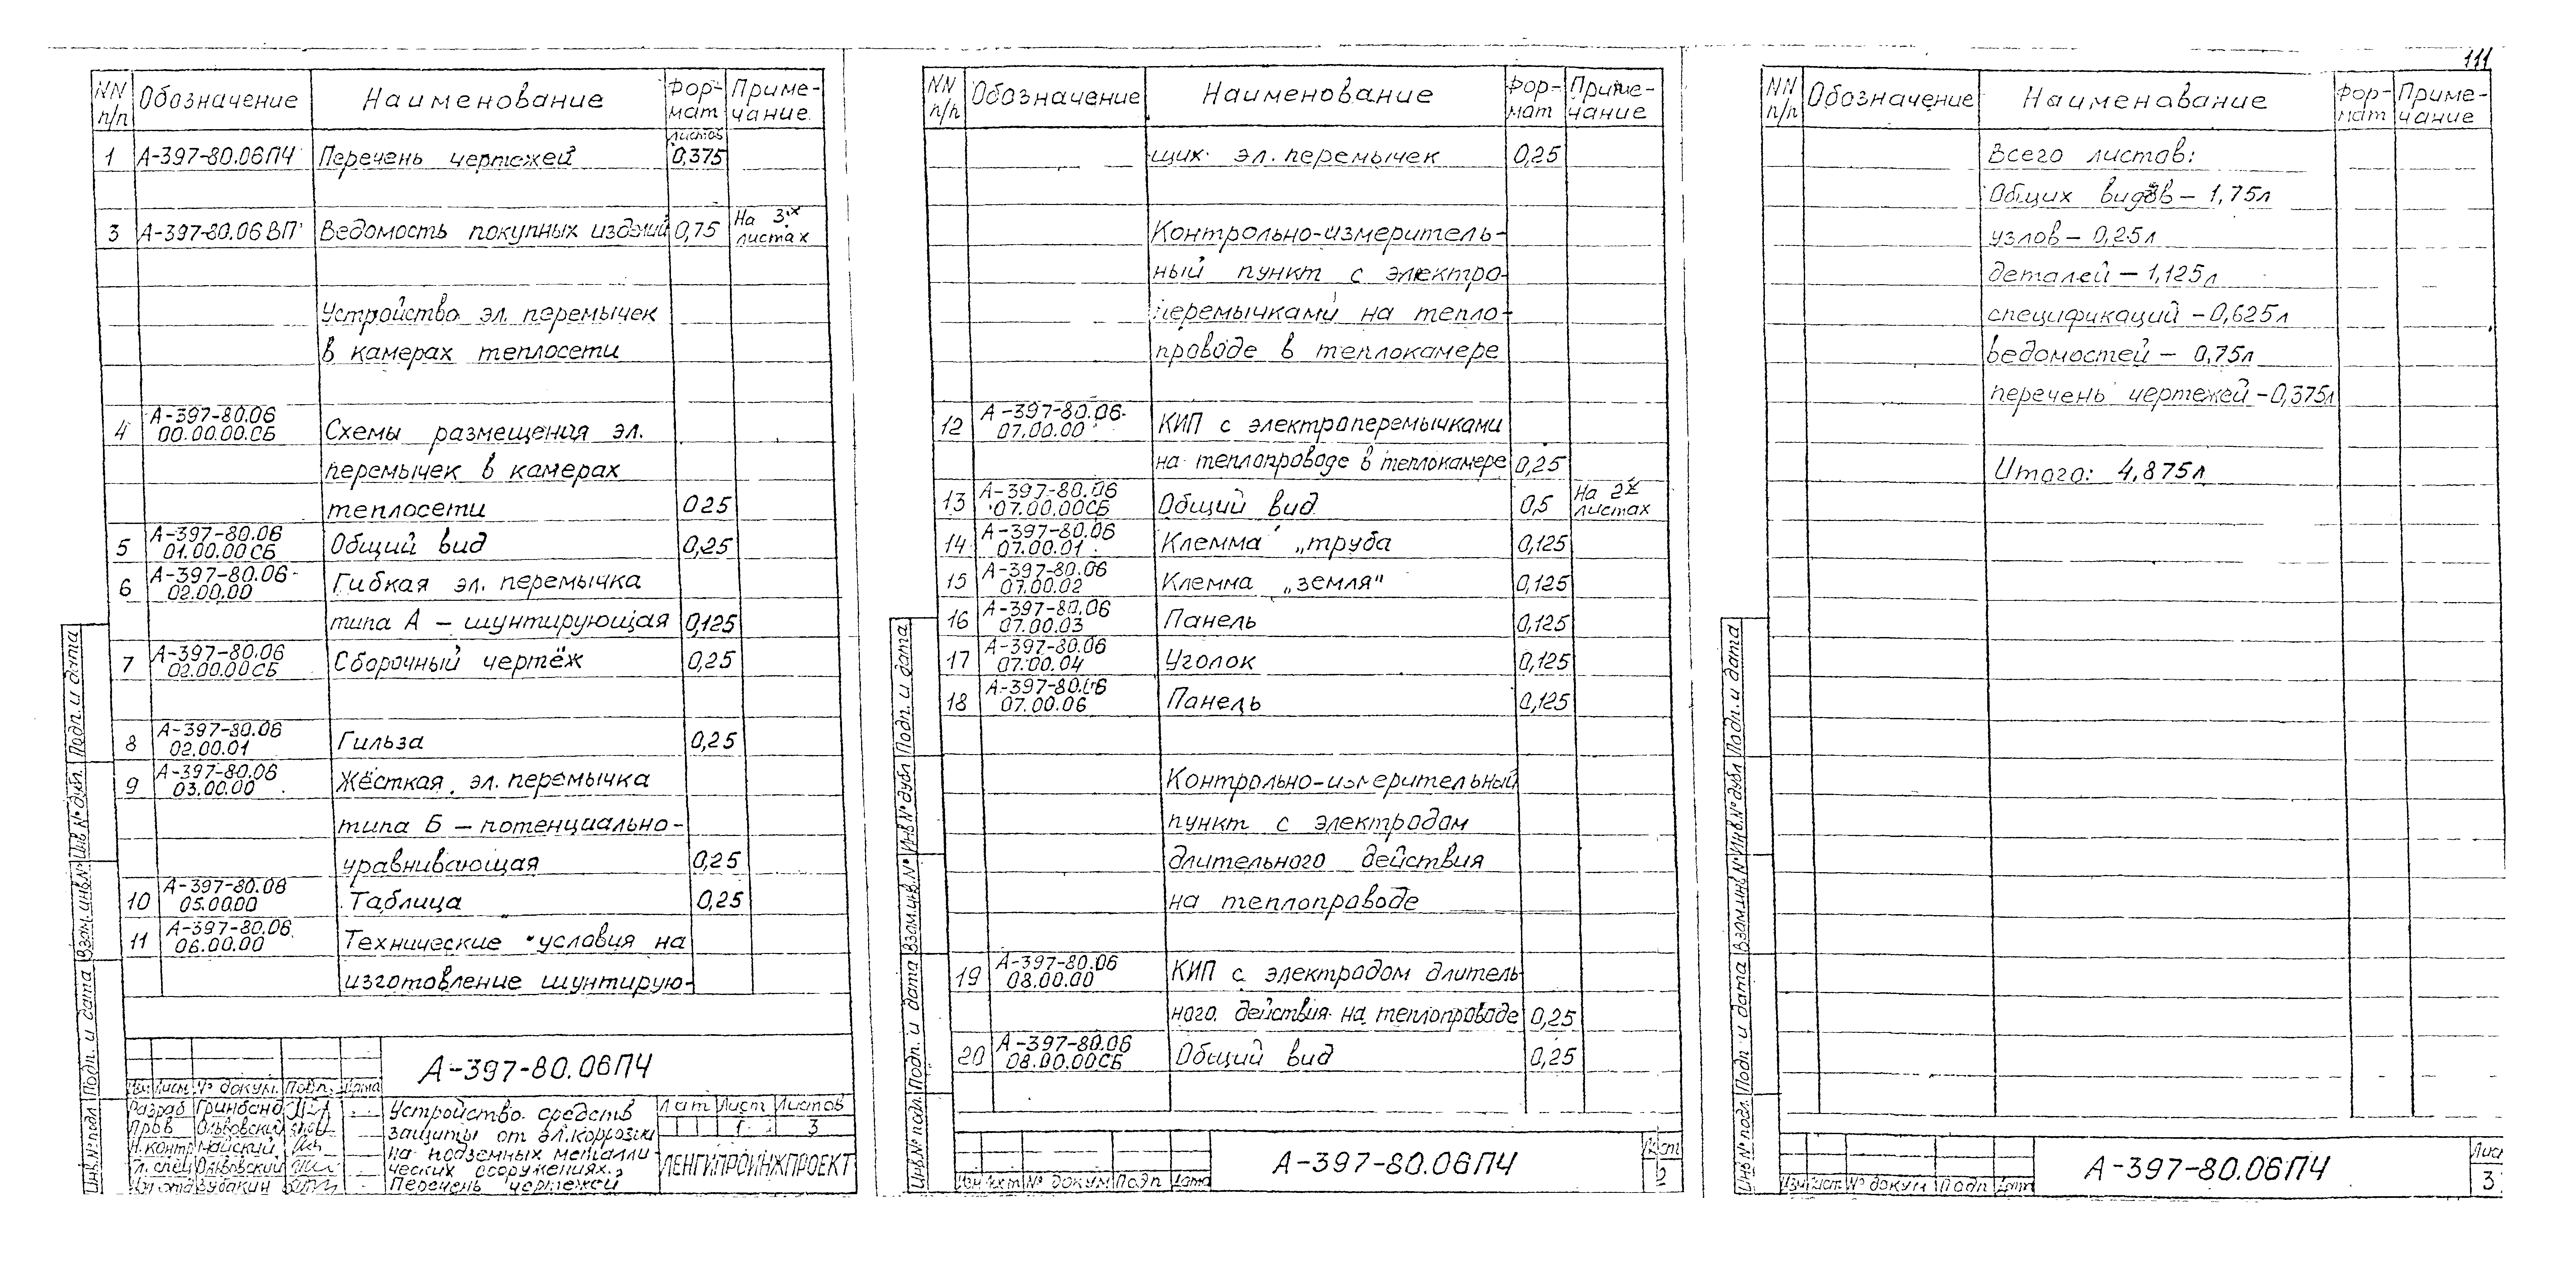 111
NN п/п Обозначение Наименование Фор-мат Приме-чание
листов
1 А-397-80.06ПЧ Перечень чертежей 0,375
3 А-397-80.06ВП Ведомость покупных изделий 0,75 На 3х листах
Устройство эл. перемычек
в камерах теплосети
А-397-80.06
4 00.00.00.СБ Схемы размещения эл.
перемычек в камерах
теплосети 025
А-397-80.06
5 01.00.00СБ Общий вид 0,25
А-397-80.06
6 02.00.00 Гибкая эл. перемычка
типа А – шунтирующая 0,125
А-397-80.06
7 02.00.00СБ Сборочный чертёж 0,25
А-397-80.06
8 02.00.01 Гильза 0,25
А-397-80.06
9 03.00.00 Жёсткая эл. перемычка
типа Б – потенциально-
уравнивающая 0,25
А-397-80.08
10 05.00.00 Таблица 0,25
А-397-80.06
11 06.00.00 Технические условия на
изготовление шунтирую-
А-397-80.06ПЧ
Изм Лист № докум. Подп. Дата
Разраб Гринбанд
Пров Ольховский
Н.контр Майский
Гл. спец Ольховский
Нач отд Зубакин
Устройство средств
защиты от эл.коррозии
на подземных металли-
ческих сооружениях.
Перечень чертежей
Лит Лист Листов
1 3
ЛЕНГИПРОИНЖПРОЕКТ
Инв.№ подл. Подп. и дата Взам.инв.№ Инв.№ дубл. Подп. и дата
NN п/п Обозначение Наименование Фор-мат Приме-чание
щих эл. перемычек 0,25
Контрольно-измеритель-
ный пункт с электро-
перемычками на тепло-
проводе в теплокамере
А-397-80.06
12 07.00.00 КИП с электроперемычками
на теплопроводе в теплокамере 0,25
А-397-80.06
13 07.00.00СБ Общий вид 0,5 На 2х листах
А-397-80.06
14 07.00.01 Клемма „труба 0,125
А-397-80.06
15 07.00.02 Клемма „земля" 0,125
А-397-80.06
16 07.00.03 Панель 0,125
А-397-80.06
17 07.00.04 Уголок 0,125
А-397-80.06
18 07.00.06 Панель 0,125
Контрольно-измерительный
пункт с электродом
длительного действия
на теплопроводе
А-397-80.06
19 08.00.00 КИП с электродом длитель
ного действия на теплопроводе 0,25
А-397-80.06
20 08.00.00СБ Общий вид 0,25
Изм Лист № докум Подп Дата
А-397-80.06ПЧ
Лист
2
Инв.№ подл. Подп. и дата Взам.инв.№ Инв.№ дубл Подп. и дата
NN п/п Обозначение Наименавание Фор-мат Приме-чание
Всего листов:
Общих видов – 1,75л
узлов – 0,25л
деталей – 1,125л
спецификаций – 0,625л
ведомостей – 0,75л
перечень чертежей – 0,375л
Итого: 4,875л
Изм Лист № докум Подп Дата
А-397-80.06ПЧ
Лист
3
Инв.№ подл. Подп и дата Взам.инв.№ Инв.№ дубл Подп. и дата